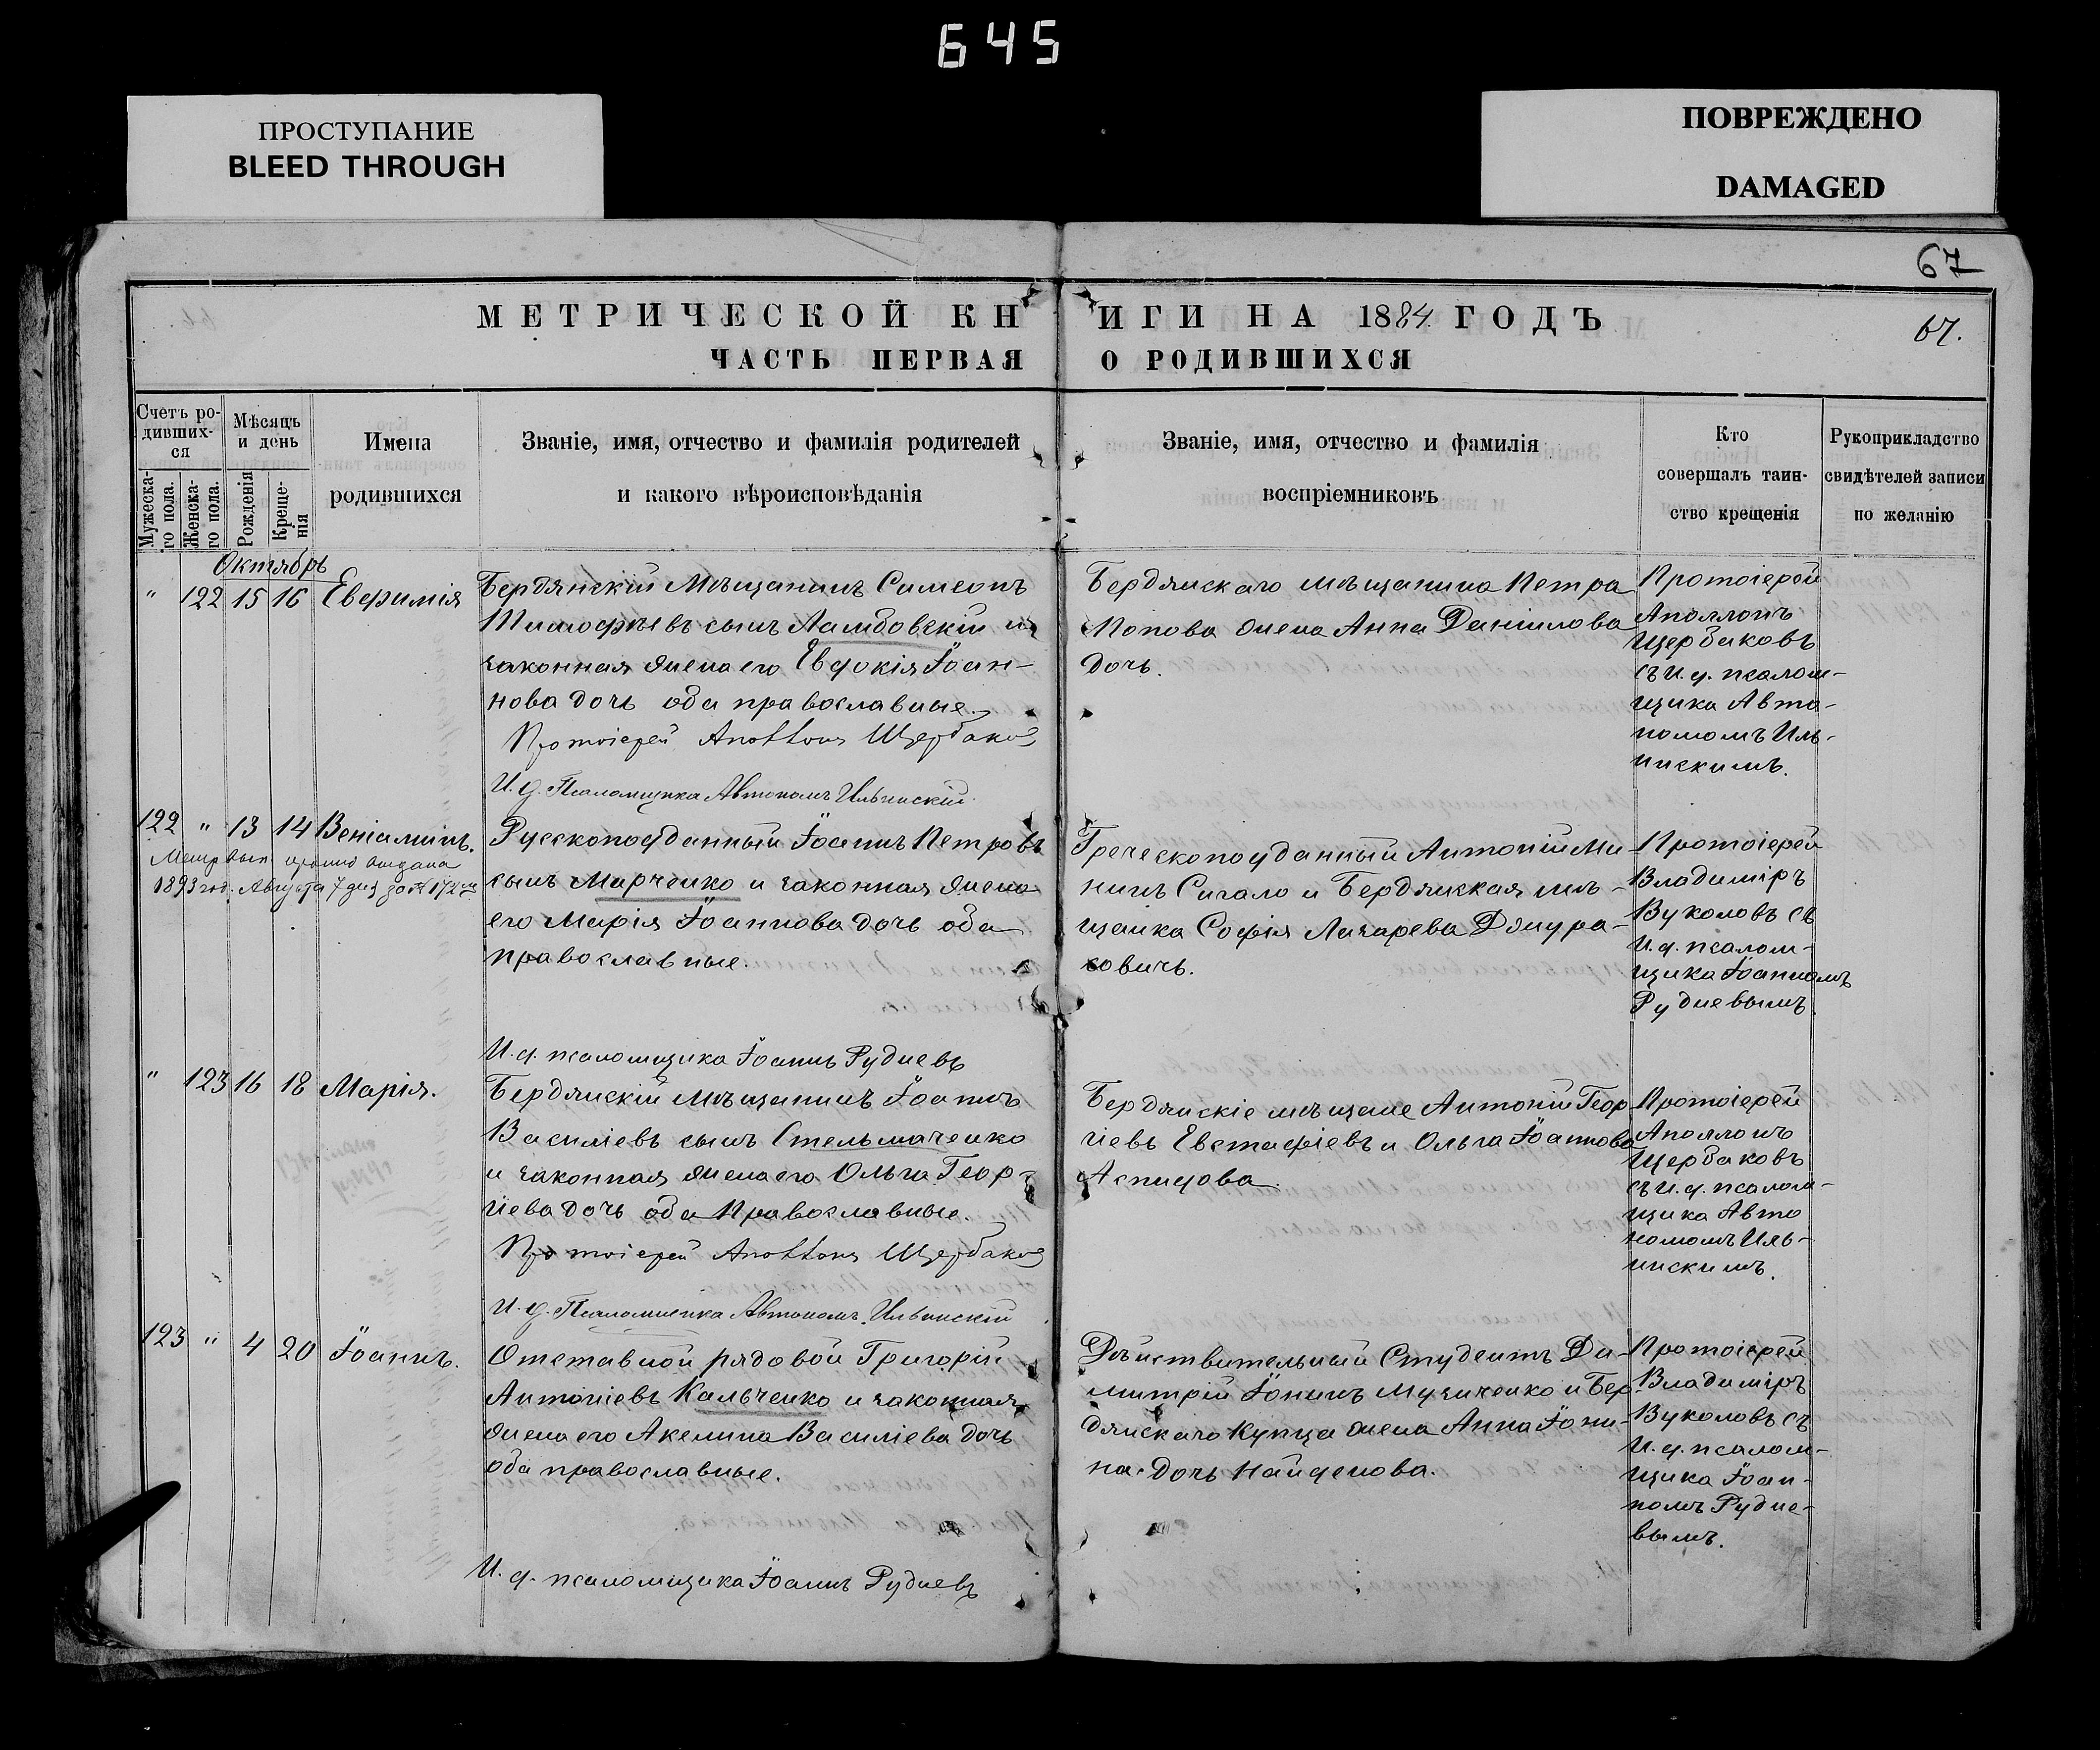 645
ПРОСТУПАНИЕ
BLEED THROUGH
ПОВРЕЖДЕНО
DAMAGED
67
МЕТРИЧЕСКОЙ КНИГИ НА 1884 ГОДЪ
67.
ЧАСТЬ ПЕРВАЯ О РОДИВШИХСЯ
Счетъ ро-
дивших-
ся
Мужеска-
го пола.
Женска-
го пола.
Мѣсяцъ
и день
Рожденія
Креще-
нія
Имена
родившихся
Званіе, имя, отчество и фамилія родителей
и какого вѣроисповѣданія
Званіе, имя, отчество и фамилія
воспріемниковъ
Кто
совершалъ таин-
ство крещенія
Рукоприкладство
свидѣтелей записи
по желанію
Октябрь
" 122 15 16 Евѳимія
Бердянскій Мѣщанинъ Симеонъ
Тимофѣевъ сынъ Ламбовскій и
законная жена его Евдокія Іоан-
нова дочь оба православные.
Протоіерей Аполлонъ Щербаковъ
И. д. Псаломщика Автономъ Ильинскій.
Бердянскаго мѣщанина Петра
Попова жена Анна Даніилова
дочь.
Протоіерей
Аполлонъ
Щербаковъ
съ и. д. псалом-
щика Авто-
номомъ Иль-
инскимъ.
122 " 13 14 Веніаминъ.
выдана
1893 год. Августа 7 дня за № 172
Русскоподданный Іоаннъ Петровъ
сынъ Марченко и законная жена
его Марія Іоаннова дочь оба
православные.
И. д. псаломщика Іоаннъ Рудневъ
Греческоподданный Антоній Ми-
нинъ Сигало и Бердянская мѣ-
щанка Софія Лазарева Джура-
совичъ.
Протоіерей
Владиміръ
Вуколовъ съ
и. д. псалом-
щика Іоанномъ
Рудневымъ.
" 123 16 18 Марія.
Бердянскій мѣщанинъ Іоаннъ
Василіевъ сынъ Стельмаченко
и законная жена его Ольга Геор-
гіева дочь оба Православные.
Протоіерей Аполлонъ Щербаковъ
И. д. Псаломщика Автономъ Ильинскій
Бердянскіе мѣщане Антоній Геор-
гіевъ Евстафіевъ и Ольга Іоаннова
Аспидова.
Протоіерей
Аполлонъ
Щербаковъ
съ и. д. псалом-
щика Авто
номомъ Иль-
инскимъ.
123 " 4 20 Іоаннъ.
Отставной рядовой Григорій
Антоніевъ Кальченко и законная
жена его Акелина Василіева дочь
оба православные.
И. д. псаломщика Іоаннъ Рудневъ
Дѣйствительный Студентъ Ди-
митрій Іонинъ Музиченко и Бер-
дянскаго Купца жена Анна Іони-
на дочь Найденова.
Протоіерей
Владиміръ
Вуколовъ съ
и. д. псалом-
щика Іоан-
номъ Рудне-
вымъ.